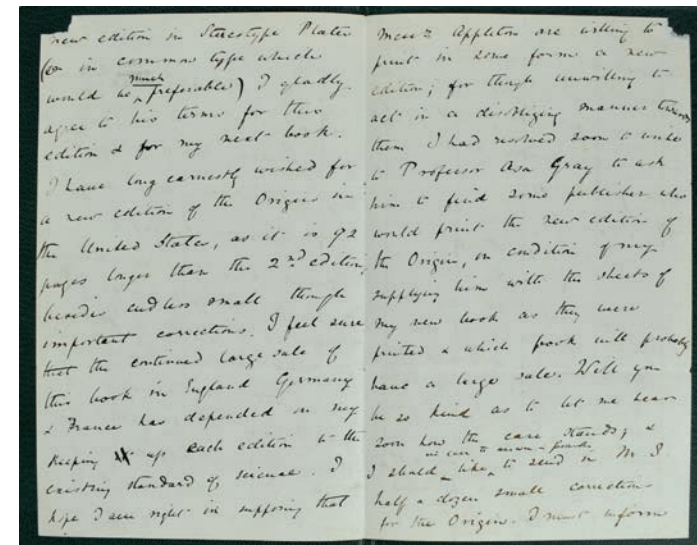 new edition in Stereotype Plates
(or in common type which
would be much preferable) I gladly
agree to his terms for this
edition & for my next book.
I have long earnestly wished for
a new edition of the Origin in
the United States, as it is 92
pages longer than the 2nd edition,
besides endless small though
important corrections. I feel sure
that the continued large sale of
this book in England Germany
& France has depended on my
keeping up each edition to the
existing standard of science. I
hope I am right in supposing that
Messrs Appleton are willing to
print in some form a new
edition; for though unwilling to
act in a disobliging manner towards
them I had resolved soon to write
to Professor Asa Gray to ask
him to find some publisher who
would print the new edition of
the Origin, on condition of my
supplying him with the sheets of
my new book as they were
printed & which book will probably
have a large sale. Will you
be so kind as to let me hear
soon how the case stands; &
I should like, in case to send in M.S.
half a dozen small corrections
for the Origin. I must inform